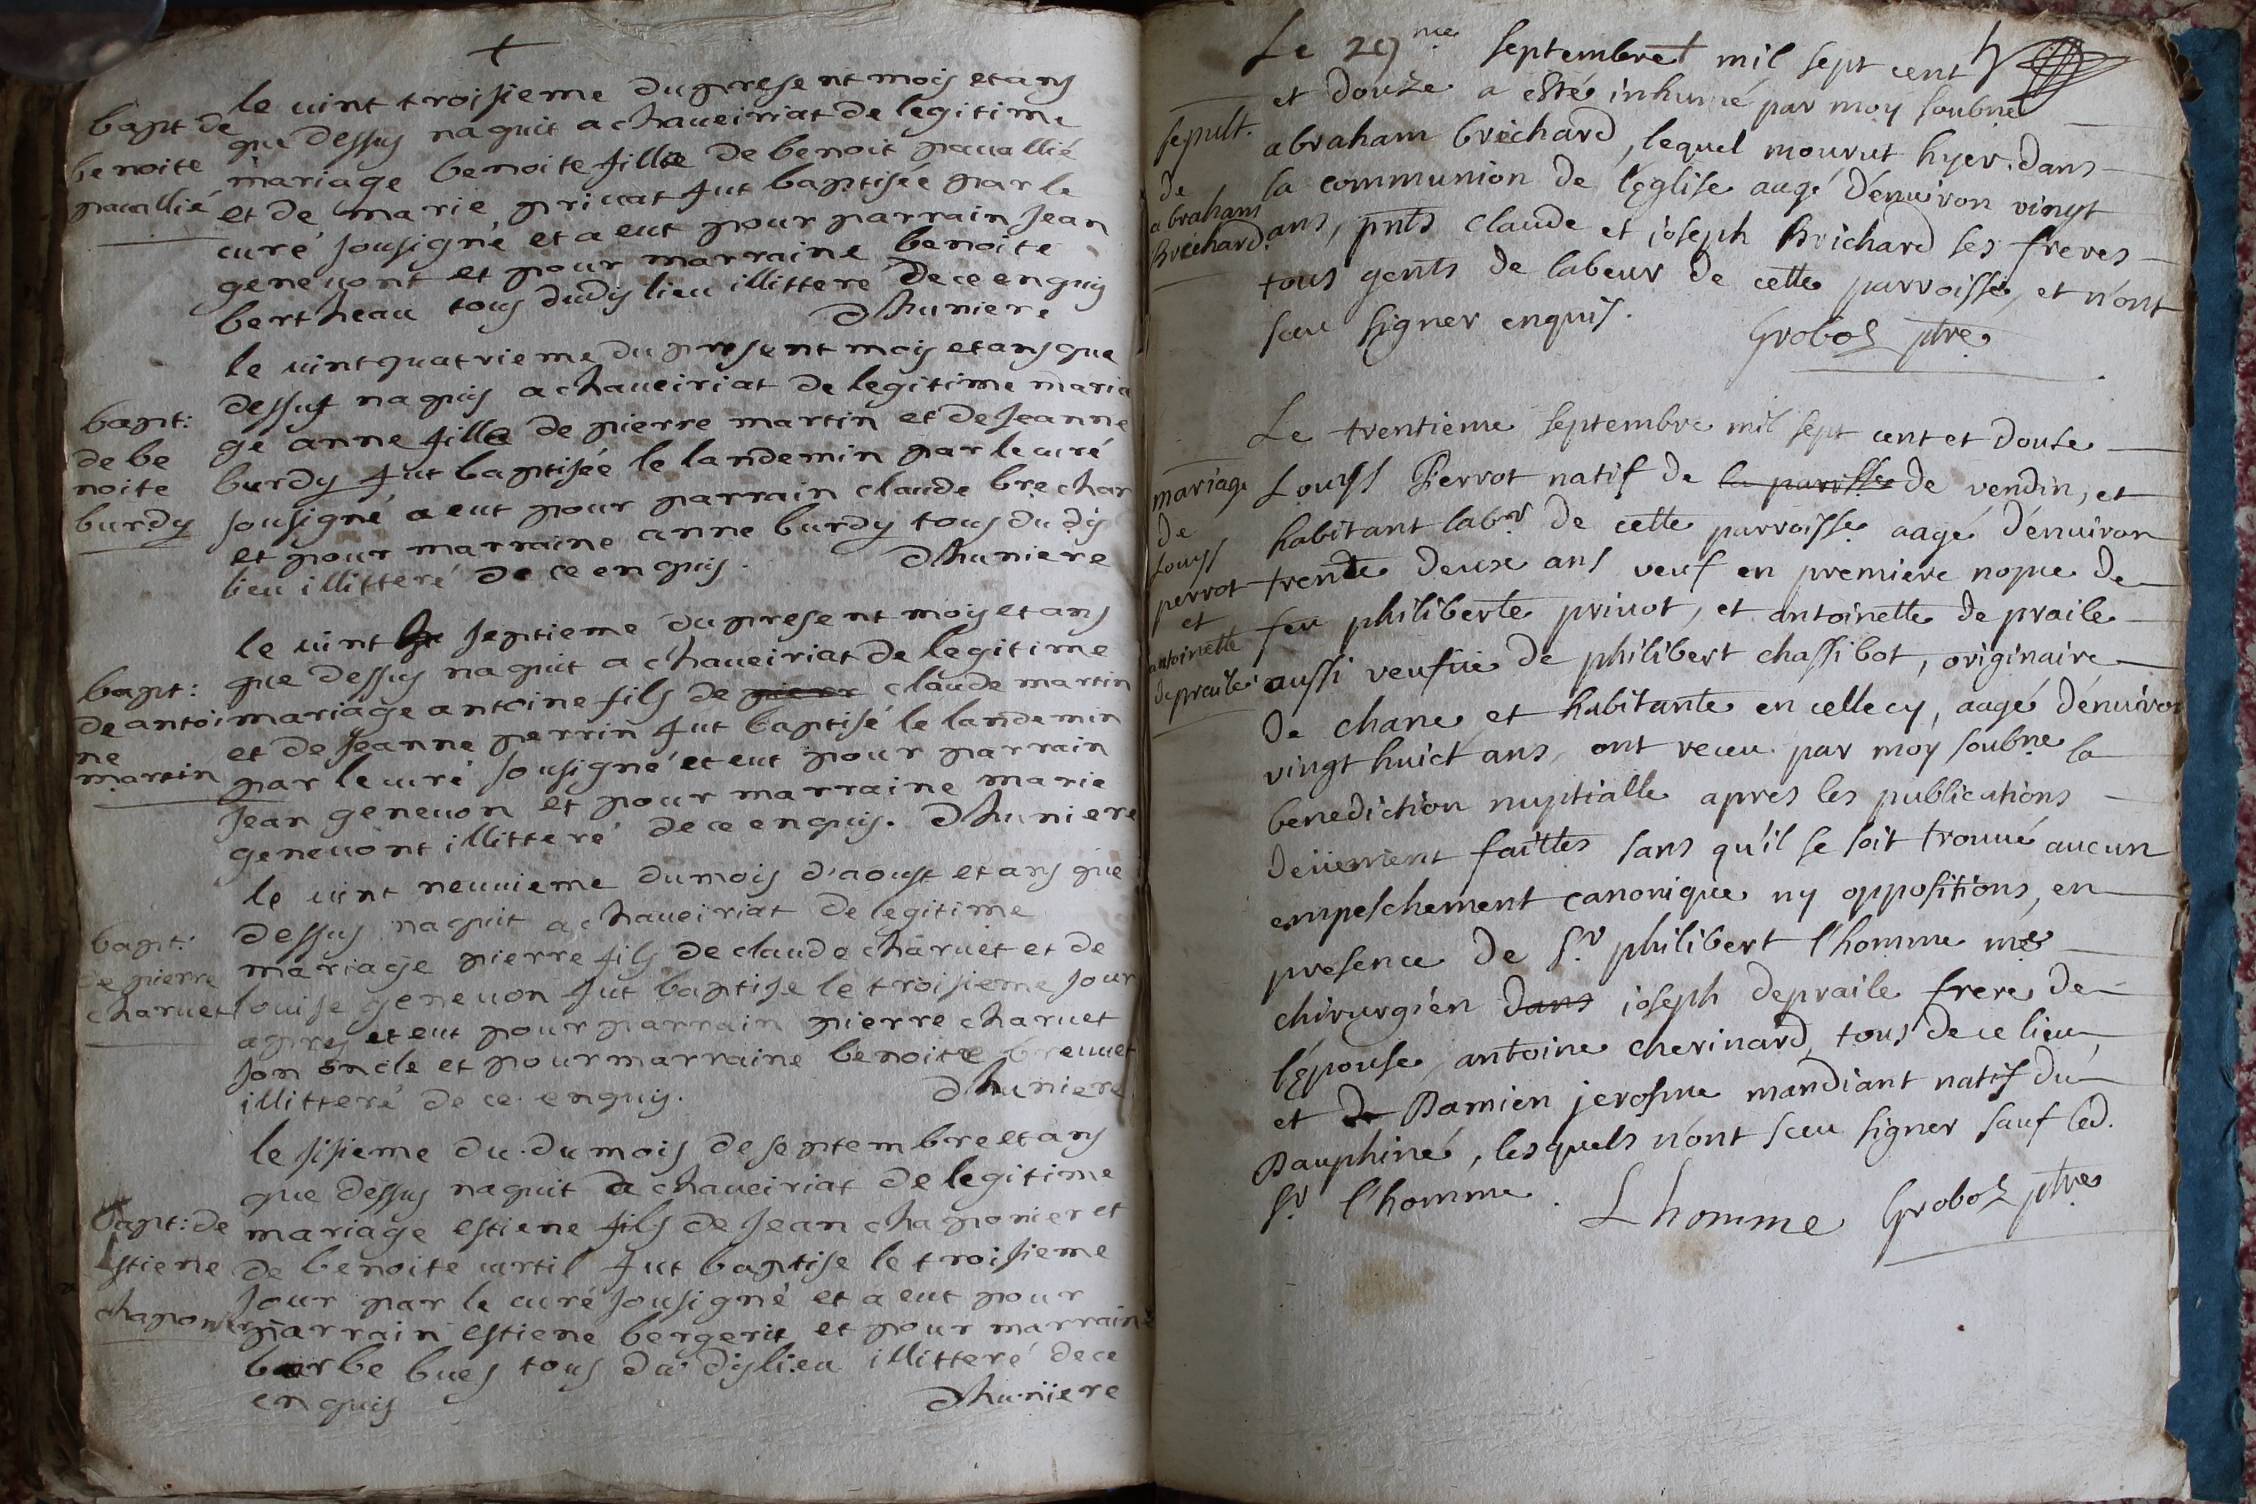 +
bapt de
benoite
pauallié
le uint troisieme du present mois et ans
que dessus naquit a chaueiriat de legitime
mariage benoite fille de benoit pauallié
et de marie priuat fut baptisée par le
curé sousigné et a eut pour parrain Jean
geneuont et pour marraine benoite
bertheau tous dudis lieu illitteré de ce enquis
Dhuniere
bapt:
de be
noite
burdy
le uint quatrieme du present mois et ans que
dessus naquis a chaueiriat de legitime maria
ge anne fille de pierre martin et de Jeanne
burdy fut baptisée le landemin par le curé
sousigné a eut pour parrain claude brechar
et pour marraine anne burdy tous du dis
lieu illitteré de ce enquis. Dhuniere
bapt:
de antoi
ne
martin
le uint septieme du present mois et ans
que dessus naquit a chaueiriat de legitime
mariage antoine fils de claude martin
et de Jeanne perrin fut baptisé le landemin
par le curé sousigné et eut pour parrain
Jean geneuon et pour marraine marie
geneuont illitteré de ce enquis. Dhuniere
bapt:
de pierre
charuet
le uint neuuieme du mois d'aoust et ans que
dessus naquit a chaueiriat de legitime
mariage pierre fils de claude charuet et de
louise geneuon fut baptise le troisieme Jour
apres et eut pour parrain pierre charuet
son oncle et pour marraine benoite breuuet
illitteré de ce enquis. Dhuniere
bapt: de
Estiene
chaponier
le sisieme du du mois de septembre et ans
que dessus naquit a chaueiriat de legitime
mariage estiene fils de Jean chaponier et
de benoite curtil fut baptise le troisieme
Jour par le curé sousigné et a eut pour
parrain estiene bergerit et pour marraine
barbe bues tous du dis lieu illitteré de ce
enquis Dhuniere
sepult.
de
abraham
Bréchard
Le 29me septembre mil sept cent
et douze a esté inhumé par moy soubne
abraham bréchard, lequel mourut hyer dans
la communion de l'église aagé d'enuiron vingt
ans, pnts claude et ioseph Brichard ses freres
tous gents de labeur de cette parroisse, et n'ont
sceu signer enquis.
Grobos ptre
mariage
de
Louys
perrot
et
antoinette
depraile
Le trentieme septembre mil sept cent et douse
Louys Perrot natif de la parisse de vendin, et
habitant labr de cette parroisse aagé d'enuiron
trente deux ans veuf en premiere nopce de
feu philiberte priuot, et antoinette de praile
aussi veufue de philibert chassibot, originaire
de chane et habitante en cellecy, aagé d'enuiron
vingt huict ans, ont receu par moy soubne la
benediction nuptialle apres les publications
deüement faittes sans qu'il se soit trouué aucun
empeschement canonique ny oppositions, en
presence de Sr philibert l'homme me
chirurgien dans ioseph depraile frere de
l'épouse, antoine cherinard, tous de ce lieu,
et de Damien jerosme mandiant natif du
Dauphiné, lesquels n'ont sceu signer sauf led.
Sr l'homme.
Lhomme Grobos ptre